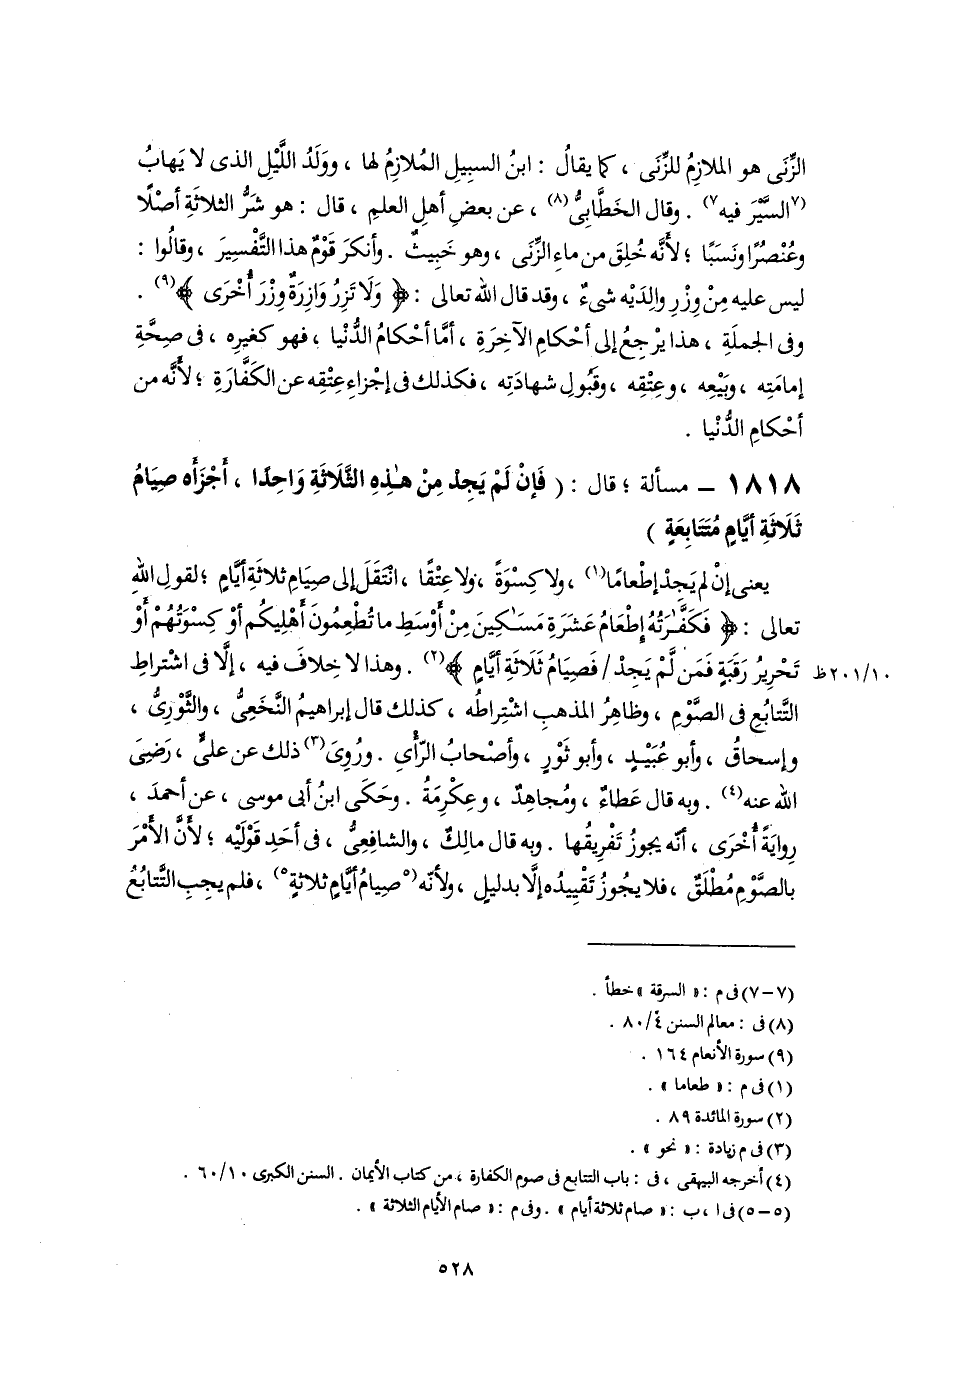 الزِّنَى هو الملازِمُ للزِّنَى ، كما يقالُ : ابنُ السبيلِ المُلازِمُ لها ، ووَلَدُ اللَّيْلِ الذى لا يَهابُ
(٧السَّيْرَ فيه٧) . وقال الخَطَّابِىُّ(٨) ، عن بعضِ أهلِ العلمِ ، قال : هو شَرُّ الثلاثَةِ أصْلًا
وعُنْصُرًا ونَسَبًا ؛ لأنَّه خُلِقَ من ماءِ الزِّنَى ، وهو خَبِيثٌ . وأنكرَ قَوْمٌ هذا التَّفْسِيرَ ، وقالُوا :
ليس عليه مِنْ وِزْرِ والِدَيْه شىءٌ ، وقد قال اللهُ تعالى : ﴿ وَلَا تَزِرُ وَازِرَةٌ وِزْرَ أُخْرَى ﴾(٩) .
وفى الجملَةِ ، هذا يرْجِعُ إلى أحْكامِ الآخِرَةِ ، أمَّا أحْكامُ الدُّنْيا ، فهو كغيرِه ، فى صِحَّةِ
إمامَتِه ، وبَيْعِه ، وعِتْقِه ، وقَبُولِ شهادَتِه ، فكذلك فى إجْزاءِ عِتْقِه عن الكَفَّارَةِ ؛ لأنَّه من
أحْكامِ الدُّنْيا .
١٨١٨ – مسألة ؛ قال : ( فَإنْ لَمْ يَجِدْ مِنْ هٰذِهِ الثَّلَاثَةِ وَاحِدًا ، أجْزَأَه صِيَامُ
ثَلَاثَةِ أيَّامٍ مُتَتَابِعَةٍ )
يعنى إنْ لم يَجِدْ إطْعامًا(١) ، ولا كِسْوَةً ، ولا عِتْقًا ، انْتَقَلَ إلى صِيَامِ ثلاثَةِ أيَّامٍ ؛ لقولِ اللهِ
تعالى : ﴿ فَكَفَّٰرَتُهُ إِطْعَامُ عَشَرَةِ مَسَٰكِينَ مِنْ أَوْسَطِ ما تُطْعِمُونَ أَهْلِيكُم أوْ كِسْوَتُهُمْ أَوْ
تَحْرِيرُ رَقَبَةٍ فَمَن لَّمْ يَجِدْ / فَصِيَامُ ثَلَاثَةِ أيَّامٍ ﴾(٢) . وهذا لا خِلافَ فيه ، إلَّا فى اشْتراطِ ١٠/٢٠١ظ
التَّتابُعِ فى الصَّوْمِ ، وظاهِرُ المذهبِ اشْتراطُه ، كذلك قال إبراهيمُ النَّخَعِىُّ ، والثَّوْرِىُّ ،
وإسحاقُ ، وأبو عُبَيْدٍ ، وأبو ثَوْرٍ ، وأصْحابُ الرَّأْىِ . ورُوِىَ(٣) ذلك عن علىٍّ ، رَضِىَ
الله عنه(٤) . وبه قال عَطاءٌ ، ومُجاهِدٌ ، وعِكْرِمَةُ . وحَكَى ابنُ أبى موسى ، عن أحمدَ ،
رِوايَةً أُخْرَى ، أنَّه يجوزُ تَفْرِيقُها . وبه قال مالِكٌ ، والشافِعِىُّ ، فى أحَدِ قَوْلَيْه ؛ لأنَّ الأمْرَ
بالصَّوْمِ مُطْلَقٌ ، فلا يجُوزُ تَقْييدُه إلَّا بدليلٍ ، ولأنَّه (٥صِيامُ أيَّامٍ ثلاثةٍ٥) ، فلم يجِبِ التَّتابُعُ
(٧-٧) فى م : « السرقة » خطأ .
(٨) فى : معالم السنن ٤/ ٨٠ .
(٩) سورة الأنعام ١٦٤ .
(١) فى م : « طعاما » .
(٢) سورة المائدة ٨٩ .
(٣) فى م زيادة : « نحو » .
(٤) أخرجه البيهقى ، فى : باب التتابع فى صوم الكفارة ، من كتاب الأيمان . السنن الكبرى ١٠/ ٦٠ .
(٥-٥) فى ا ، ب : « صام ثلاثة أيام » . وفى م : « صام الأيام الثلاثة » .
٥٢٨